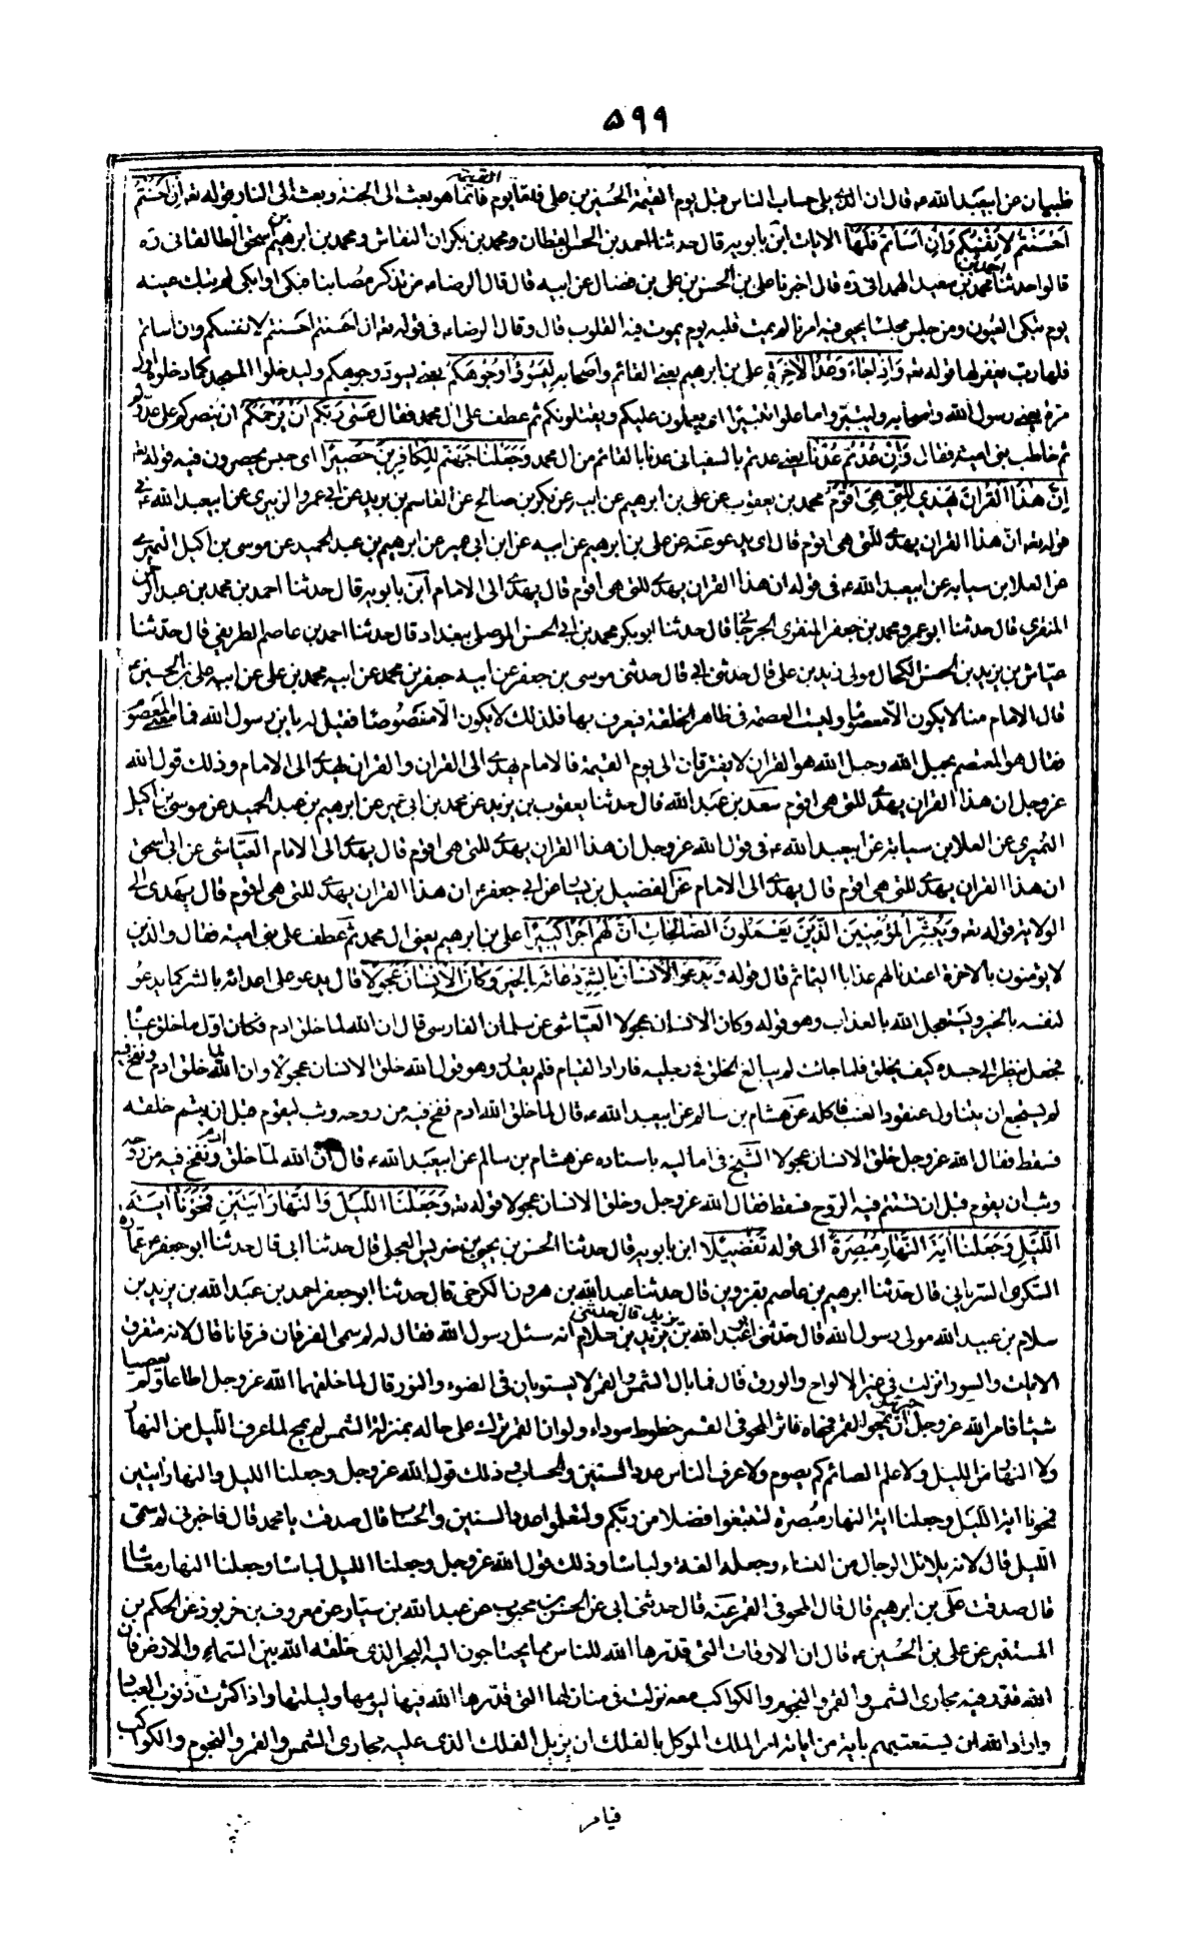 ٥٩٩
ظبيان عن ابيعبد الله ع قال ان الذي يلي حساب الناس قبل يوم القيمة الحسين بن علي فاما يوم القيمة فانما هو بعث الى الجنة وبعث الى النار قوله تع ان احسنتم
احسنتم لانفسكم وان اسأتم فلها الايات ابن بابويه قال حدثنا احمد بن الحسن القطان ومحمد بن بكران النقاش ومحمد بن ابراهيم بن اسحق الطالقاني ره
قالوا حدثنا احمد بن محمد بن سعيد الهمداني ره قال اخبرنا علي بن الحسن بن علي بن فضال عن ابيه قال قال الرضا ع من تذكر مصابنا فبكى او ابكى لم تبك عينه
يوم تبكى العيون ومن جلس مجلسا يحيى فيه امرنا لم يمت قلبه يوم يموت فيه القلوب قال وقال الرضا ع في قوله تع ان احسنتم احسنتم لانفسكم وان اسأتم
فلها رب يغفر لها قوله تع واذا جاء وعد الاخرة علي بن ابراهيم يعني القائم واصحابه ليسوؤا وجوهكم يعني يسود وجوهكم وليدخلوا المسجد كما دخلوه اول
مرة يعني رسول الله واصحابه وليتبروا ما علوا تتبيرا اي يعلون عليكم ويقتلونكم ثم عطف على ال محمد فقال عسى ربكم ان يرحمكم ان ينصركم على عدوكم
ثم خاطب بني امية فقال وان عدتم عدنا يعني عدتم بالسفياني عدنا بالقائم من ال محمد وجعلنا جهنم للكافرين حصيرا اي حبس يحصرون فيه قوله تع
ان هذا القران يهدي للتي هي اقوم محمد بن يعقوب عن علي بن ابرهيم عن ابيه عن بكر بن صالح عن القاسم بن بريد عن ابي عمرو الزبيري عن ابيعبد الله ع في
قوله تع ان هذا القران يهدي للتي هي اقوم قال اي يدعو عنه عن علي بن ابرهيم عن ابيه عن ابن ابي عمير عن ابرهيم بن عبد الحميد عن موسى بن اكيل النميري
عن العلا بن سيابه عن ابيعبد الله ع في قوله ان هذا القران يهدي للتي هي اقوم قال يهدي الى الامام ابن بابويه قال حدثنا احمد بن محمد بن عبد الرحمن
المقري قال حدثنا ابو عمرو محمد بن جعفر المقري الجرجاني قال حدثنا ابو بكر محمد بن ابي الحسن الموصلي ببغداد قال حدثنا احمد بن عاصم الطريفي قال حدثنا
عياش بن يزيد بن الحسن الكحال مولى زيد بن علي قال حدثني ابي قال حدثني موسى بن جعفر عن ابيه جعفر بن محمد عن ابيه محمد بن علي عن ابيه علي بن الحسين ع
قال الامام منا لا يكون الا معصوما وليست العصمة في ظاهر الخلقة فيعرف بها فلذلك لا يكون الا منصوصا فقيل له يابن رسول الله فما معنى المعصوم
فقال هو المعتصم بحبل الله وحبل الله هو القران لا يفترقان الى يوم القيمة فالامام يهدي الى القران والقران يهدي الى الامام وذلك قول الله
عز وجل ان هذا القران يهدي للتي هي اقوم سعد بن عبد الله قال حدثنا يعقوب بن يزيد عن محمد بن ابي عمير عن ابرهيم بن عبد الحميد عن موسى بن اكيل
النميري عن العلا بن سيابة عن ابيعبد الله ع في قول الله عز وجل ان هذا القران يهدي للتي هي اقوم قال يهدي الى الامام العياشي عن ابي اسحق
ان هذا القران يهدي للتي هي اقوم قال يهدي الى الامام عن الفضيل بن يسار عن ابي جعفر ع ان هذا القران يهدي للتي هي اقوم قال يهدي الى
الولاية قوله تع ويبشر المؤمنين الذين يعملون الصالحات ان لهم اجرا كبيرا علي بن ابراهيم يعني ال محمد ثم عطف على بني امية فقال والذين
لا يؤمنون بالاخرة اعتدنا لهم عذابا اليما ثم قال قوله ويدعو الانسان بالشر دعائه بالخير وكان الانسان عجولا قال يدعو على اعدائه بالشر كما يدعو
لنفسه بالخير ويستعجل الله بالعذاب وهو قوله وكان الانسان عجولا العياشي عن سلمان الفارسي قال ان الله لما خلق ادم فكان اول ما خلق عيناه
فجعل ينظر الى جسده كيف يخلق فلما حانت لم يبالغ الخلق في رجليه فاراد القيام فلم يقدر وهو قول الله خلق الانسان عجولا وان الله لما خلق ادم ونفخ فيه
لم يستجمع ان يتناول عنقود العنب فاكله عن هشام بن سالم عن ابيعبد الله ع قال لما خلق الله ادم نفخ فيه من روحه وثب ليقوم قبل ان يتم خلقه
فسقط فقال الله عز وجل خلق الانسان عجولا الشيخ في اماليه باسناده عن هشام بن سالم عن ابيعبد الله ع قال ان الله لما خلق ادم ونفخ فيه من روحه
وثب ان يقوم قبل ان تستتم فيه الروح فسقط فقال الله عز وجل وخلق الانسان عجولا قوله تع وجعلنا الليل والنهار ايتين فمحونا اية
الليل وجعلنا اية النهار مبصرة الى قوله تفصيلا ابن بابويه قال حدثنا الحسن بن يحيى بن ضريس العجلي قال حدثنا ابي قال حدثنا ابو جعفر عمارة
السكري السرياني قال حدثنا ابرهيم بن عاصم بقزوين قال حدثنا عبد الله بن هرون الكرخي قال حدثنا ابو جعفر احمد بن عبد الله بن يزيد بن
سلام بن عبيد الله مولى رسول الله قال حدثني ابي عبد الله بن يزيد قال حدثني يزيد بن سلام انه سئل رسول الله فقال له لم سمى الفرقان فرقانا قال لانه متفرق
الايات والسور انزلت في غير الالواح والورق قال فما بال الشمس والقمر لا يستويان في الضوء والنور قال لما خلقهما الله عز وجل اطاعا ولم يعصيا
شيئا فامر الله عز وجل جبرئيل ان يمحو القمر فمحاه فاثر المحو في القمر خطوط سوداء ولو ان القمر ترك على حاله بمنزلة الشمس لم يمح لما عرف الليل من النهار
ولا النهار من الليل ولا علم الصائم كم يصوم ولا عرف الناس عدد السنين والحساب وذلك قول الله عز وجل وجعلنا الليل والنهار ايتين
فمحونا اية الليل وجعلنا اية النهار مبصرة لتبتغوا فضلا من ربكم ولتعلموا عدد السنين والحساب قال صدقت يا محمد قال فاخبرني لم سمى
الليل قال لانه يلايل الرجال من النساء وجعله الفة ولباسا وذلك قول الله عز وجل وجعلنا الليل لباسا وجعلنا النهار معاشا
قال صدقت علي بن ابرهيم قال قال المحو في القمر عنه قال حدثني ابي عن الحسن بن محبوب عن عبد الله بن سيار عن معروف بن خربوذ عن الحكم بن
المستنير عن علي بن الحسين ع قال ان الاوقات التي قدرها الله للناس مما يحتاجون اليه البحر الذي خلقه الله بين السماء والارض فان
الله قدر فيه مجاري الشمس والقمر والنجوم والكواكب معه نزلت في منازلها التي قدرها الله فيها ليومها وليلتها واذا كثرت ذنوب العباد
واراد الله ان يستعتبهم باية من اياته امر الملك الموكل بالفلك ان يزيل الفلك الذي عليه مجاري الشمس والقمر والنجوم والكواكب
فيامر